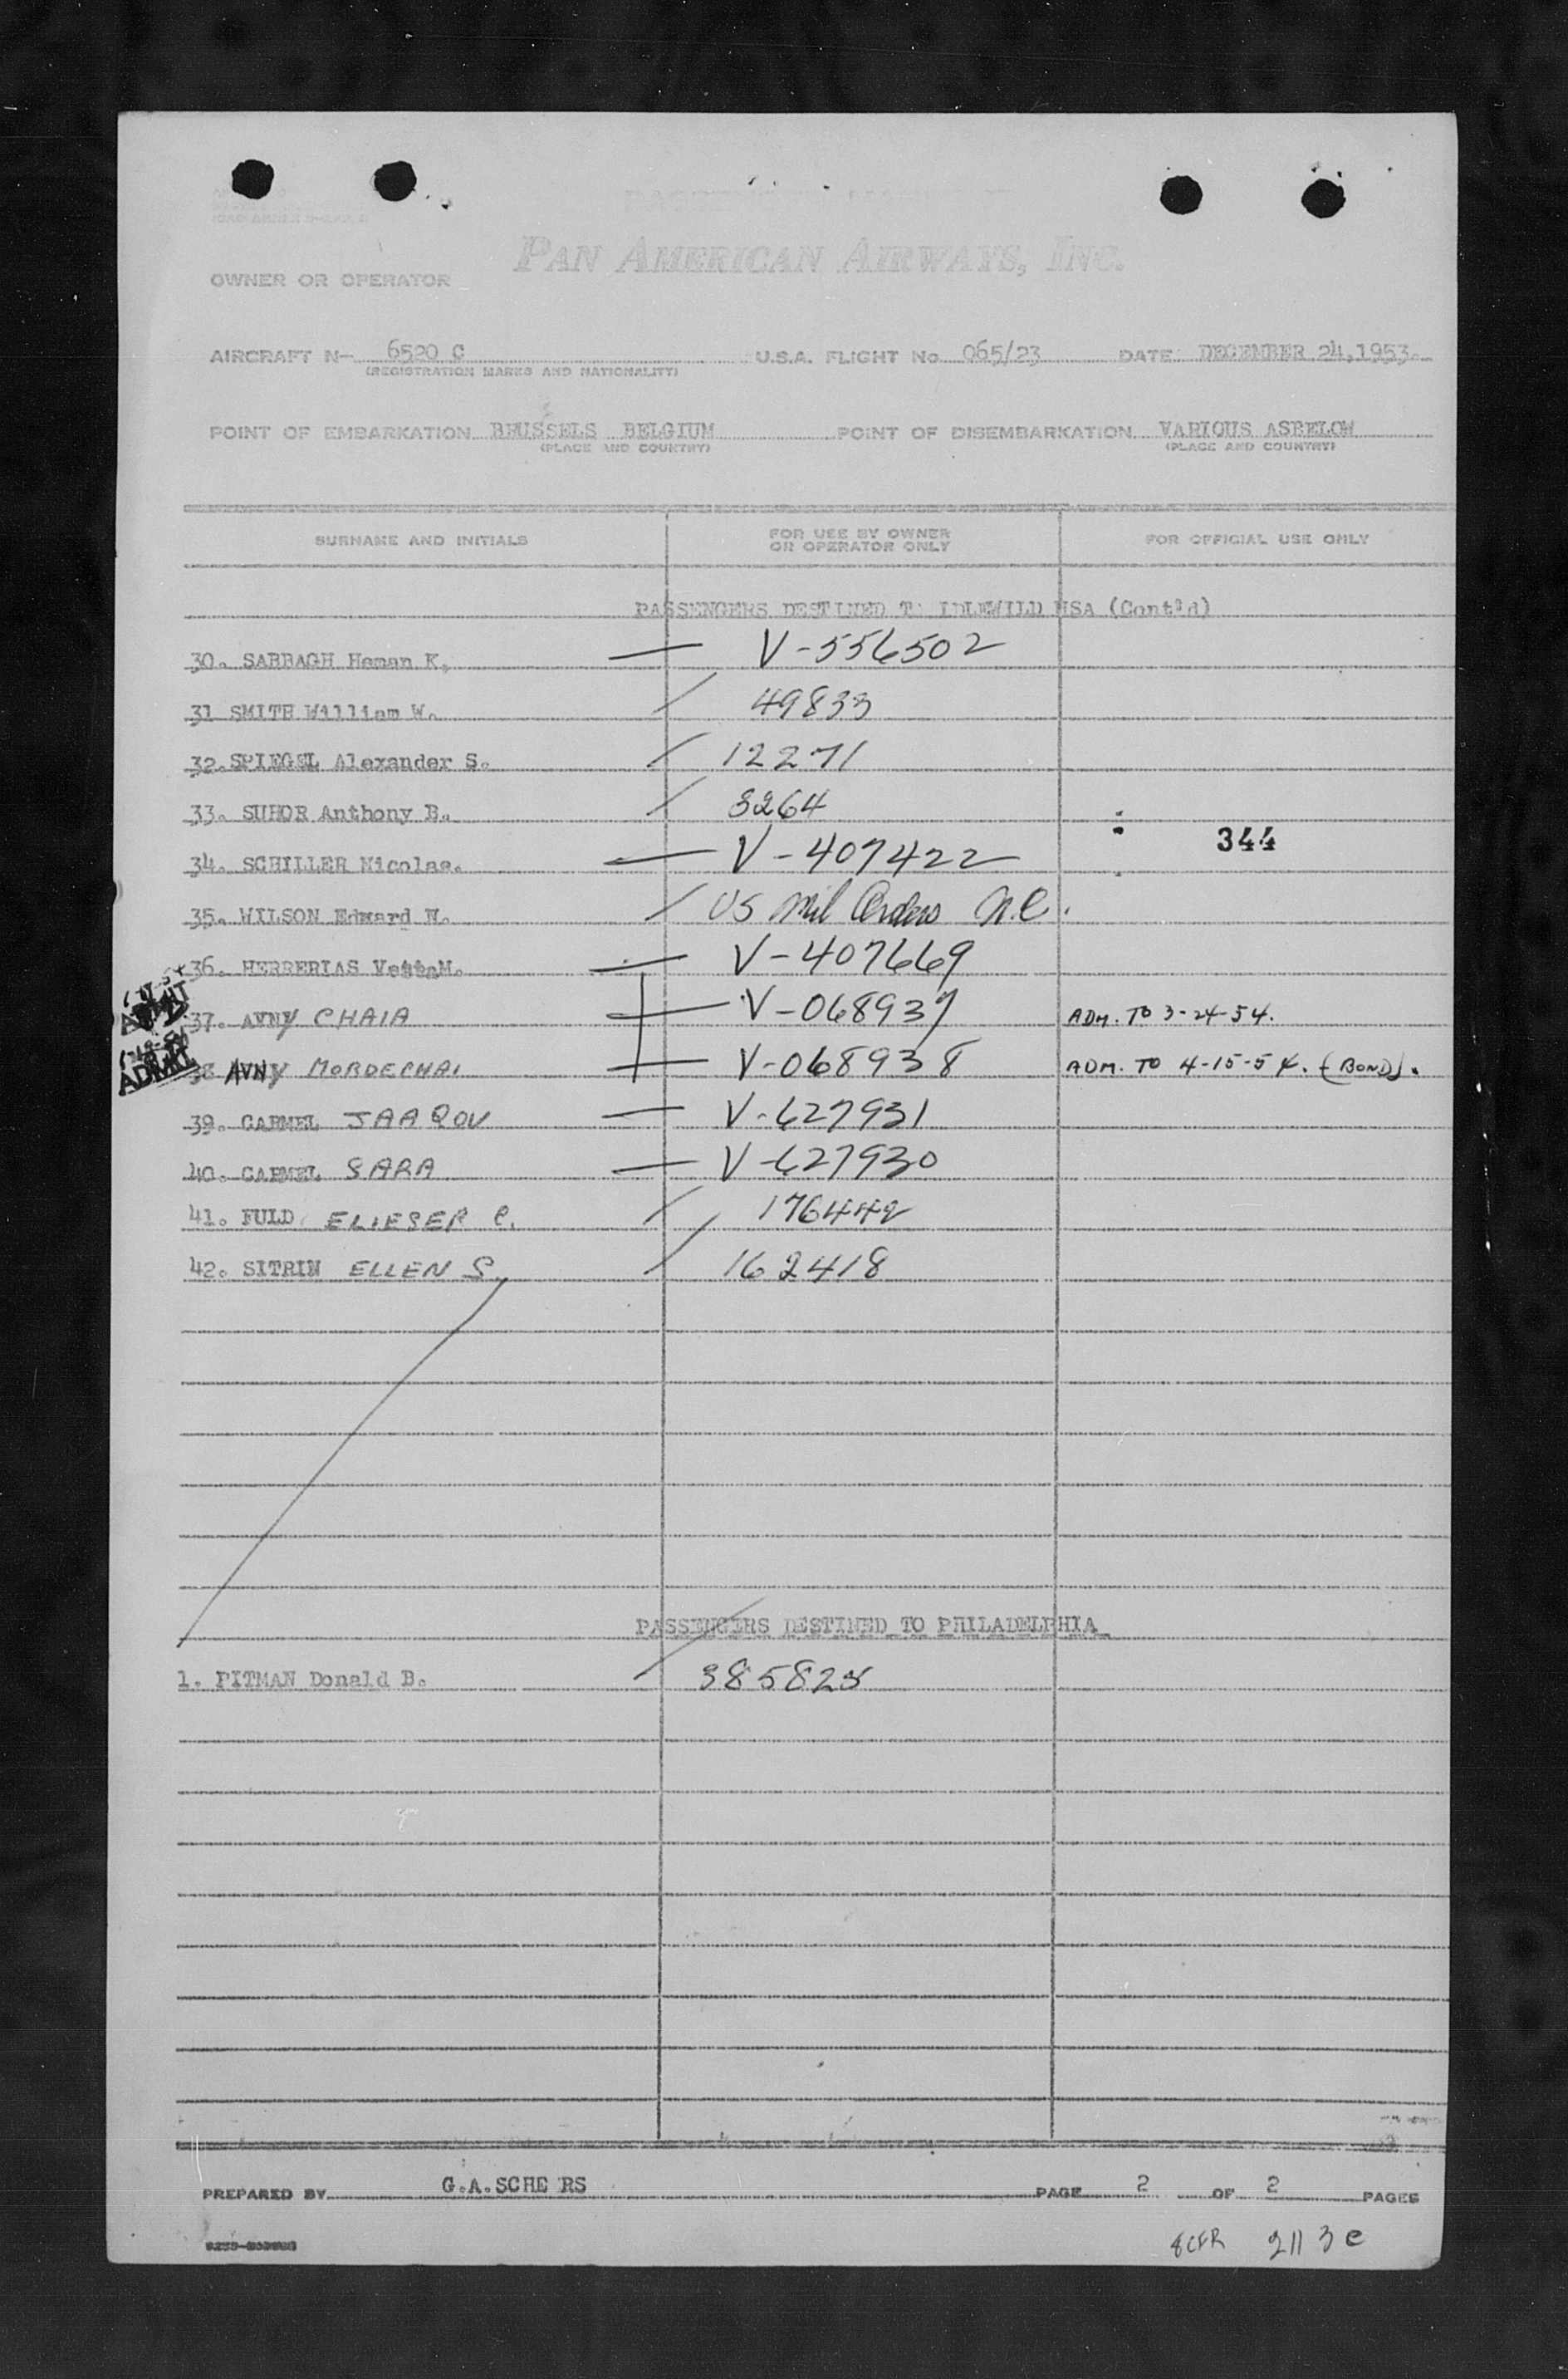 PAN AMERICAN AIRWAYS, INC.
OWNER OR OPERATOR
AIRCRAFT N— 6520 C U.S.A. FLIGHT No. 065/23 DATE: DECEMBER 24,1953.
(REGISTRATION MARKS AND NATIONALITY)
POINT OF EMBARKATION BRUSSELS BELGIUM POINT OF DISEMBARKATION VARIOUS ASBELOW
(PLACE AND COUNTRY) (PLACE AND COUNTRY)
SURNAME AND INITIALS FOR USE BY OWNER OR OPERATOR ONLY FOR OFFICIAL USE ONLY
PASSENGERS DESTINED T IDLEWILD USA (Cont'd)
30. SABBAGH Heman K. — V-556502
31 SMITH William W. / 49833
32. SPIEGEL Alexander S. / 12271
33. SUHOR Anthony B. / 3264
344
34. SCHILLER Nicolas. — V-407422
35. WILSON Edward N. / US Mil Orders N.C.
36. HERRERIAS VettaM. — V-407669
37. AVNY CHAIA — V-068937 ADM. TO 3-24-54.
ADMIT
38 AVNY MORDECHAI — V-068938 ADM. TO 4-15-54. (BOND).
39. CARMEL JAAQOV — V-627931
40. CARMEL SARA — V-627930
41. FULD ELIESER C. / 176442
42. SITRIN ELLEN S. / 162418
PASSENGERS DESTINED TO PHILADELPHIA
1. PITMAN Donald B. / 385823
PREPARED BY G.A.SCHE RS PAGE 2 OF 2 PAGES
8CFR 2113e